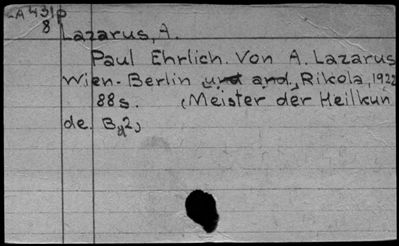 -A431p
8
Lazarus, A.
Paul Ehrlich. Von A. Lazarus
Wien-Berlin und and, Rikola, 1922
88s. (Meister der Heilkun
de. Bd2)